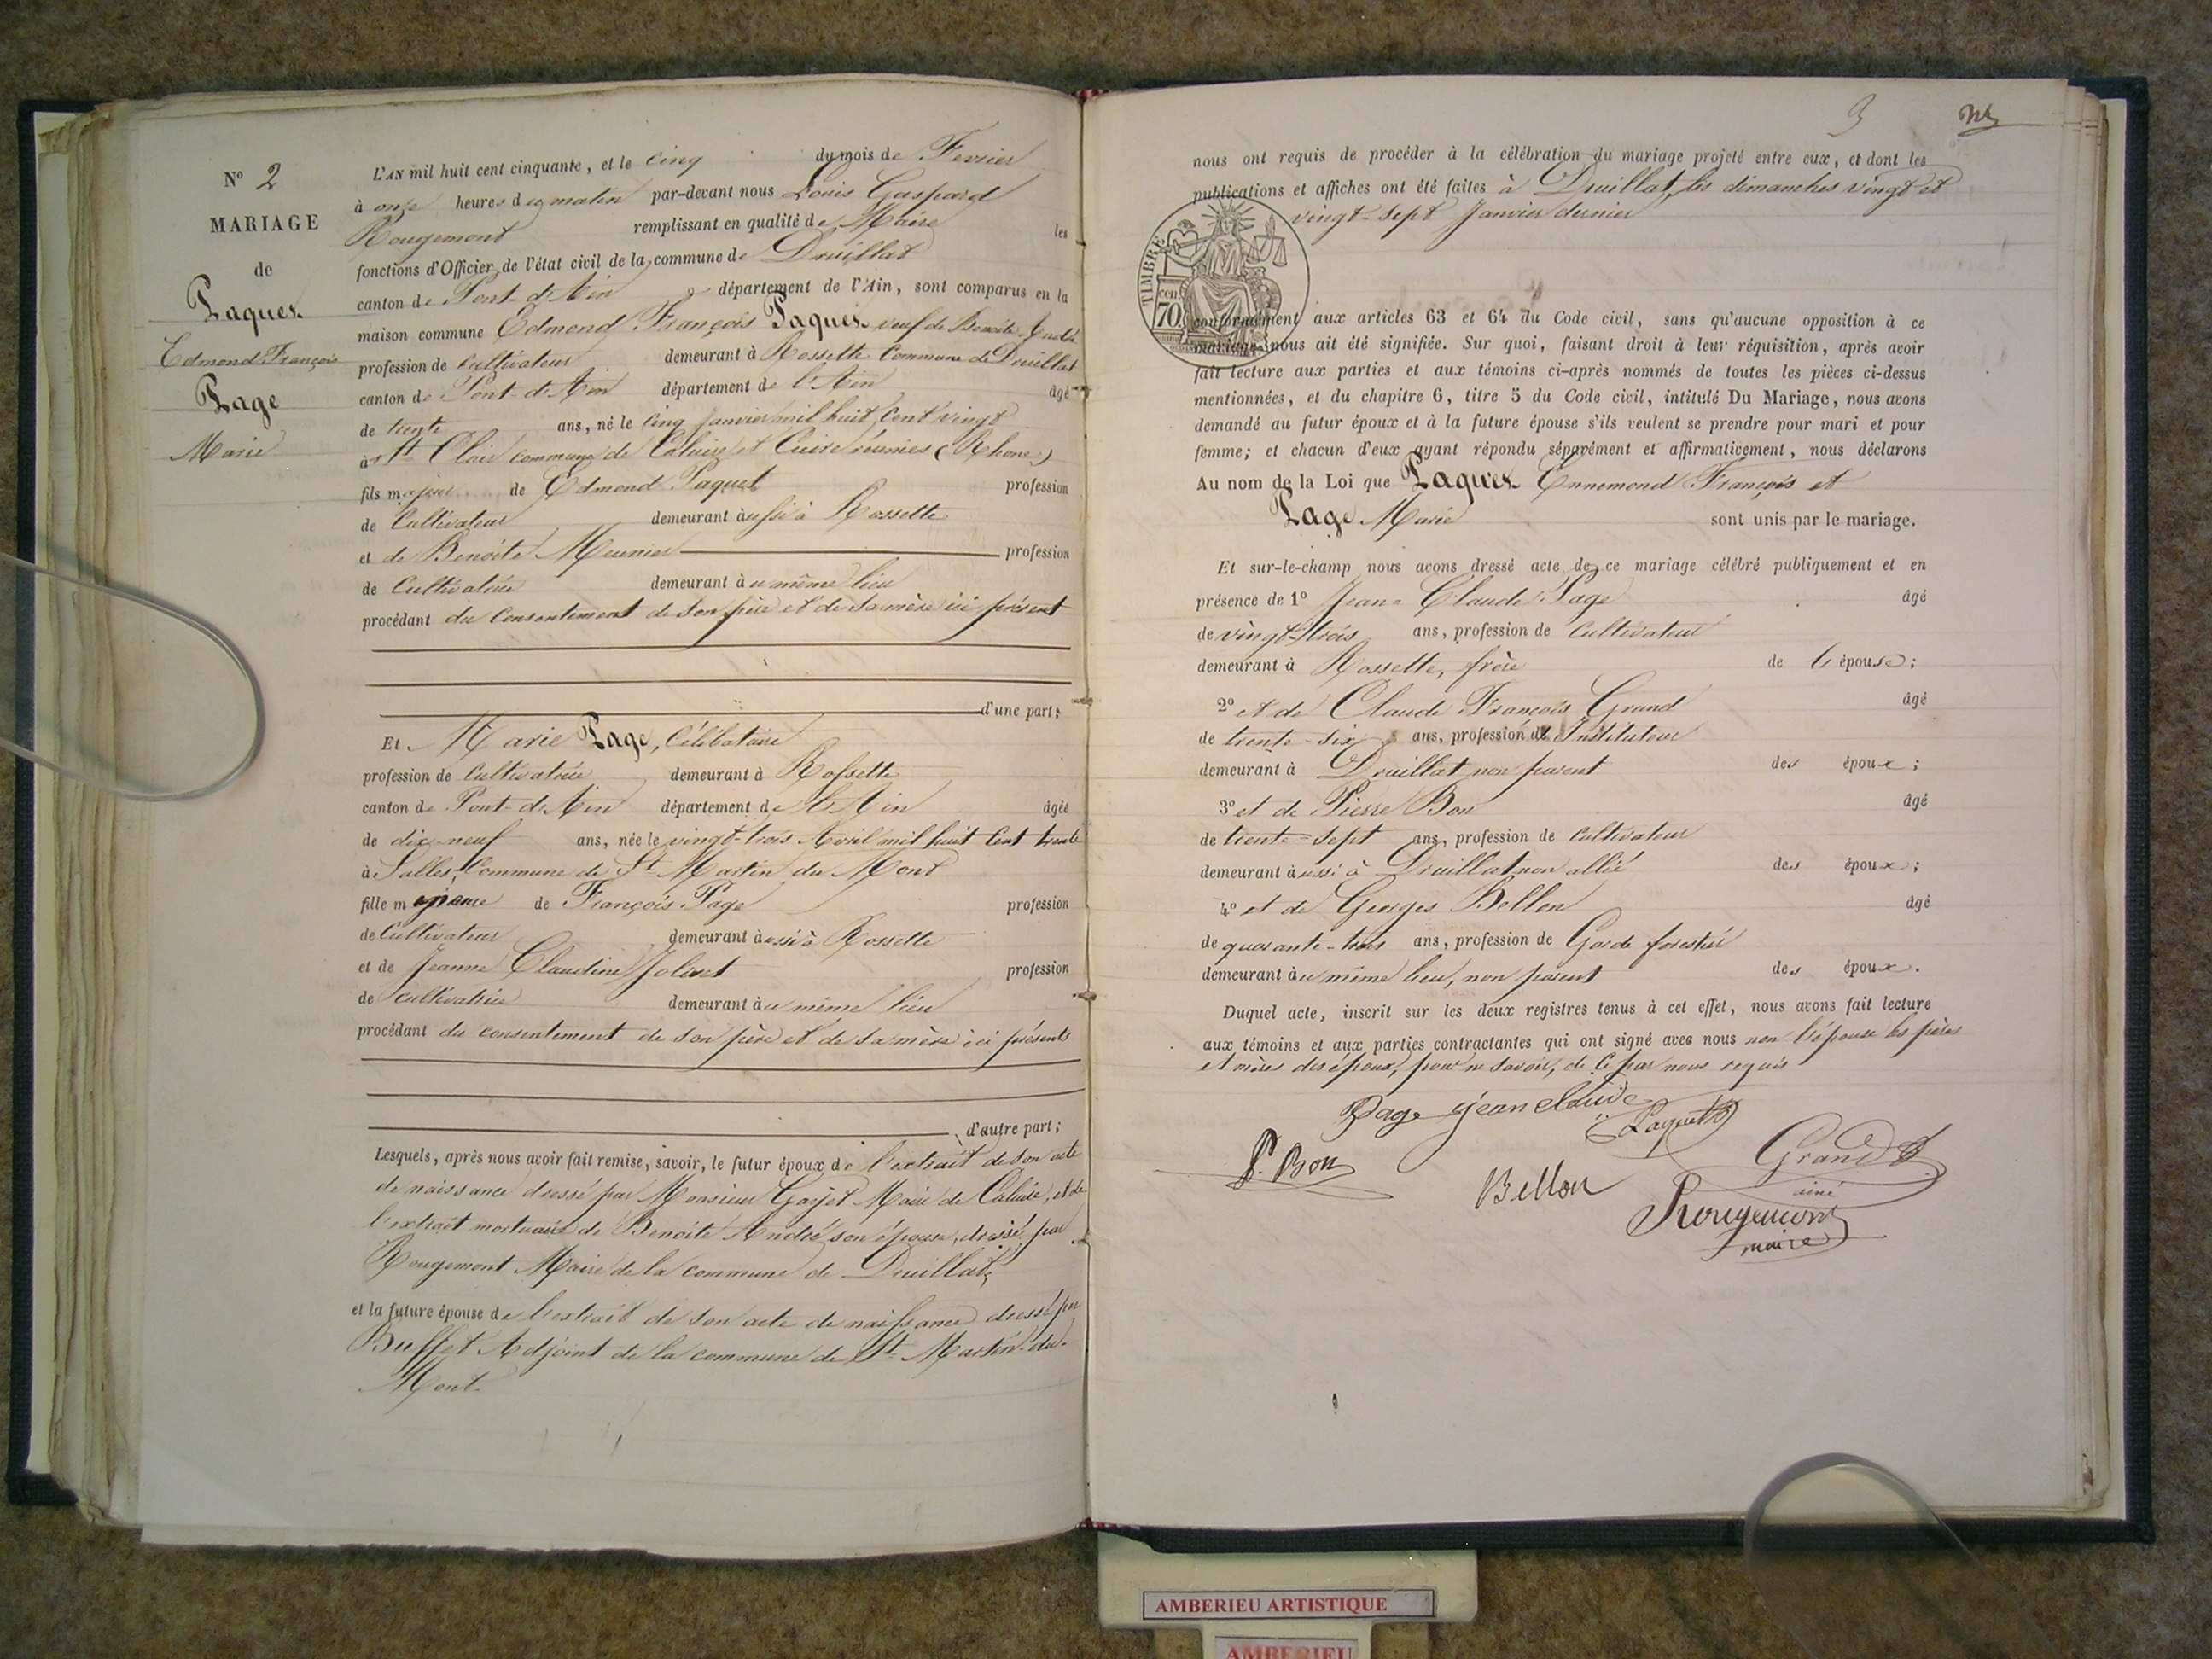 N° 2
MARIAGE
de
Paquet
Edmond François
Page
Marie
L'AN mil huit cent cinquante, et le cinq du mois de Fevrier
à onze heures du matin par-devant nous Louis Gaspard
Rougemont remplissant en qualité de Maire les
fonctions d'Officier de l'état civil de la commune de Druillat
canton de Pont-d'Ain département de l'Ain, sont comparus en la
maison commune Edmond François Paquet veuf de Benoîte André
profession de cultivateur demeurant à Rossette Commune de Druillat
canton de Pont-d'Ain département de l'Ain âgé
de trente ans, né le cinq janvier mil huit cent vingt
à St Clair commune de Caluire et Cuire réunies (Rhone)
fils majeur de Edmond Paquet profession
de Cultivateur demeurant aussi à Rossette
et de Benoîte Meunier profession
de Cultivatrice demeurant au même lieu
procédant du consentement de son père et de sa mère ici présent
d'une part;
Et Marie Page, Célibataire
profession de Cultivatrice demeurant à Rossette
canton de Pont-d'Ain département de l'Ain âgée
de dix-neuf ans, née le vingt-trois Avril mil huit cent trente
à Salles, Commune de St Martin du Mont
fille mineure de François Page profession
de Cultivateur demeurant aussi à Rossette
et de Jeanne Claudine Jolivet profession
de cultivatrice demeurant au même lieu
procédant du consentement de son père et de sa mère ici présents
d'autre part;
Lesquels, après nous avoir fait remise, savoir, le futur époux de l'extrait de son acte
de naissance dressé par Monsieur Maire de Caluire, et de
l'extrait mortuaire de Benoîte André son épouse, dressé par
Rougemont Maire de la commune de Druillat,
et la future épouse de l'extrait de son acte de naissance dressé par
Buffet Adjoint de la commune de St Martin-du-
Mont
3
nous ont requis de procéder à la célébration du mariage projeté entre eux, et dont les
publications et affiches ont été faites à Druillat, les dimanches vingt et
vingt-sept Janvier dernier
TIMBRE
cent
70
conformément aux articles 63 et 64 du Code civil, sans qu'aucune opposition à ce
mariage nous ait été signifiée. Sur quoi, faisant droit à leur réquisition, après avoir
fait lecture aux parties et aux témoins ci-après nommés de toutes les pièces ci-dessus
mentionnées, et du chapitre 6, titre 5 du Code civil, intitulé Du Mariage, nous avons
demandé au futur époux et à la future épouse s'ils veulent se prendre pour mari et pour
femme; et chacun d'eux ayant répondu séparément et affirmativement, nous déclarons
Au nom de la Loi que Paquet Ennemond François et
Page Marie sont unis par le mariage.
Et sur-le-champ nous avons dressé acte de ce mariage célébré publiquement et en
présence de 1° Jean-Claude Page âgé
de vingt-trois ans, profession de Cultivateur
demeurant à Rossette, frère de l'épouse;
2° et de Claude François Grand âgé
de trente-six ans, profession de Instituteur
demeurant à Druillat non parent des époux;
3° et de Pierre Bon âgé
de trente-sept ans, profession de Cultivateur
demeurant aussi à Druillat non allié des époux;
4° et de Georges Bellon âgé
de quarante-trois ans, profession de Garde forestier
demeurant au même lieu, non parent des époux.
Duquel acte, inscrit sur les deux registres tenus à cet effet, nous avons fait lecture
aux témoins et aux parties contractantes qui ont signé avec nous non l'épouse les pères
et mères des époux, pour ne savoir, de ce par nous requis
Page jean claude
Paquet
P. Bon
Bellon
Grand
ainé
Rougemont
maire
AMBERIEU ARTISTIQUE
AMBERIEU